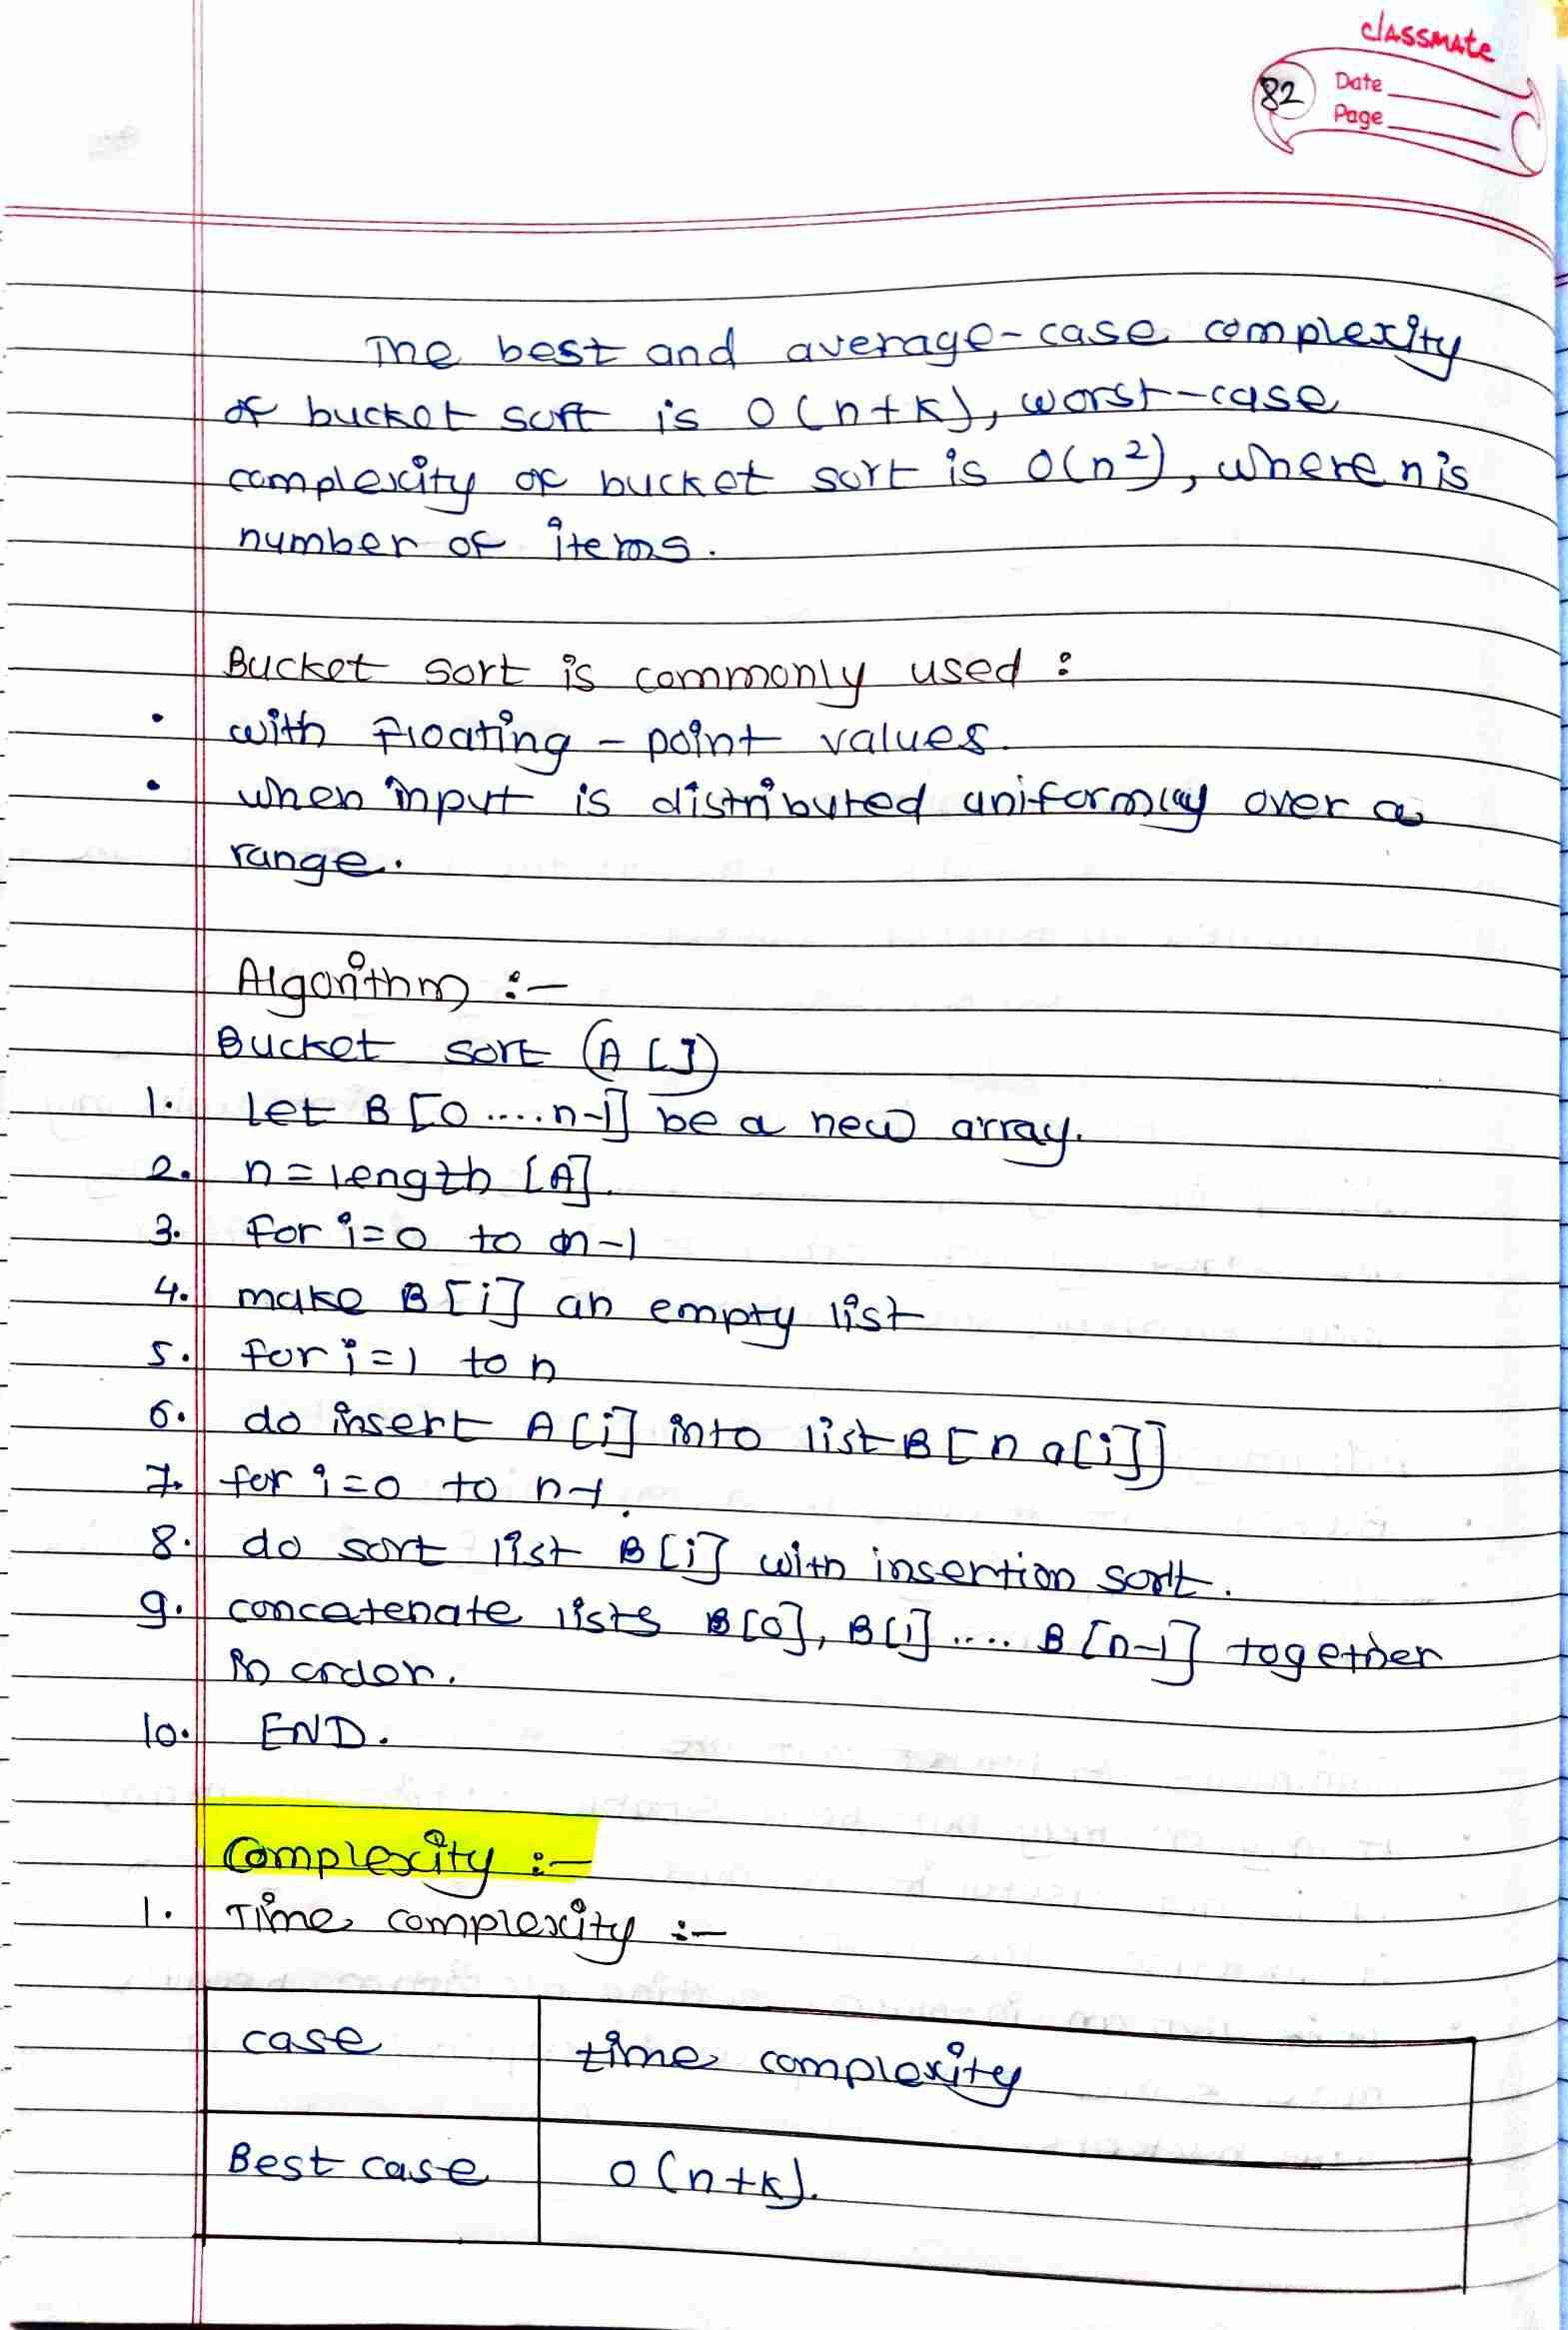 classmate
82
Date
Page
The best and average-case complexity
of bucket sort is O(n+k), worst-case
complexity of bucket sort is O(n²), where n is
number of items.
Bucket sort is commonly used :
• with floating - point values.
• when input is distributed uniformly over a
range.
Algorithm :-
Bucket sort (A[])
1. let B[0....n-1] be a new array.
2. n=length [A].
3. for i=0 to n-1
4. make B[i] an empty list
5. for i=1 to n
6. do insert A[i] into list B[n a[i]]
7. for i=0 to n-1.
8. do sort list B[i] with insertion sort.
9. concatenate lists B[0], B[1].... B[n-1] together
in order.
10. END.
Complexity :-
1. Time complexity :-
case time complexity
Best case O(n+k).